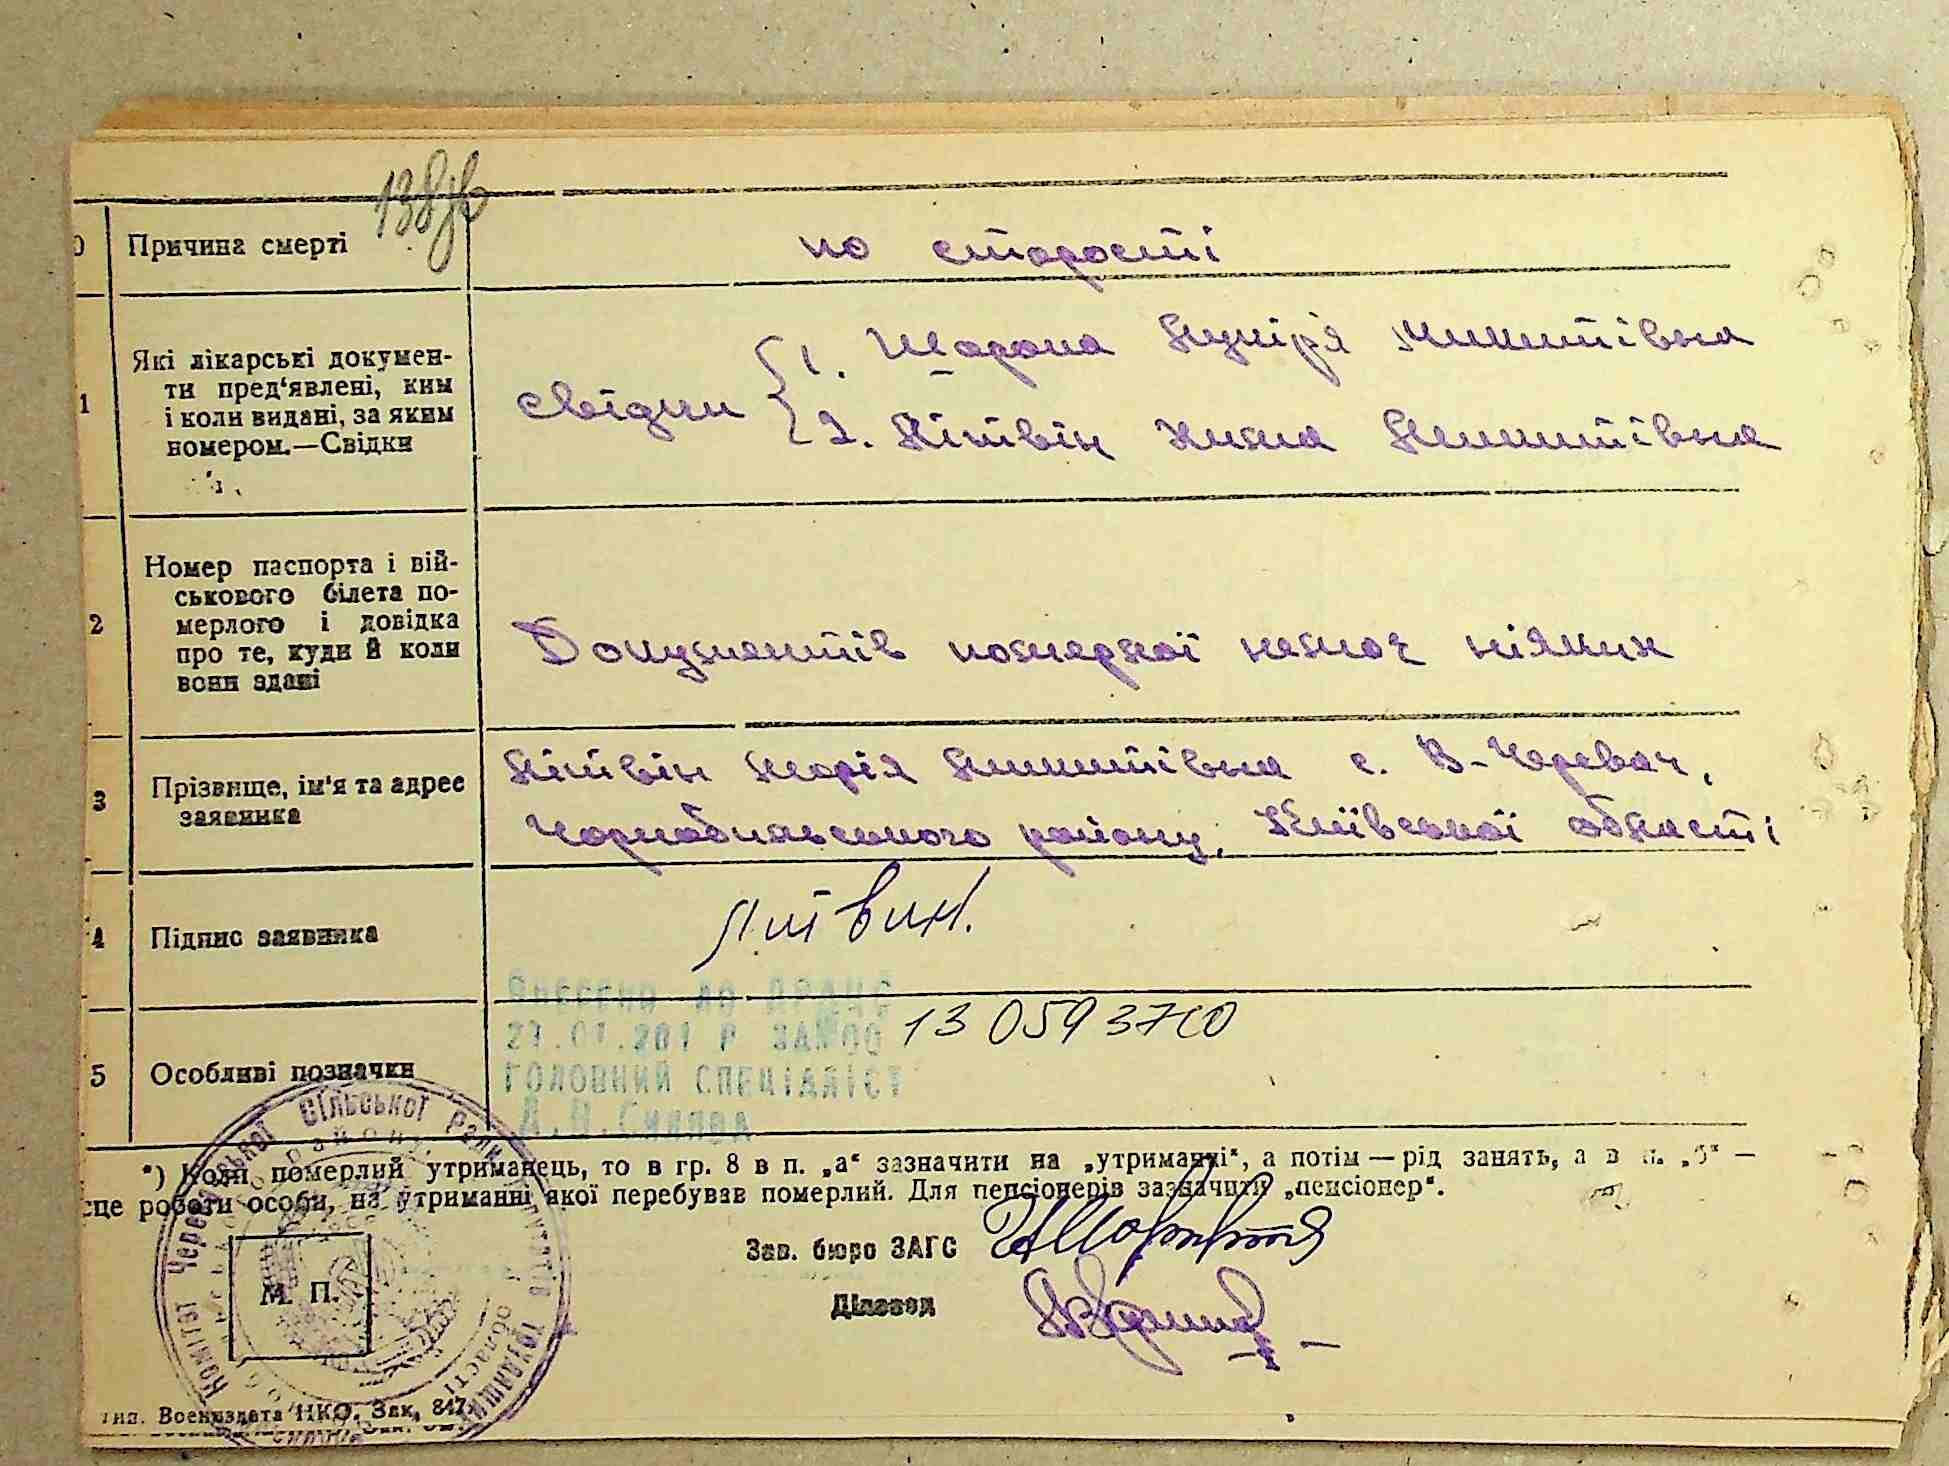 138зв
0 Причина смерті
по старості
1 Які лікарські докумен-
ти пред'явлені, ким
і коли видані, за яким
номером.—Свідки
свідки
1. Шарапа Лукір'я Микитівна
2. Літвін Ганна Микитівна
2 Номер паспорта і вій-
ськового білета по-
мерлого і довідка
про те, куди й коли
вони здані
Документів померлої немає ніяких
3 Прізвище, ім'я та адрес
заявника
Літвін Марія Микитівна с. В-Черевач,
Чорнобильського району, Київської області
4 Підпис заявника
Литвин.
5 Особливі позначки
Внесено до ДРАЦС
ЗА №00 130593710
ГОЛОВНИЙ СПЕЦІАЛІСТ
*) Коли померлий утриманець, то в гр. 8 в п. „а“ зазначити на „утриманні“, а потім — рід занять, а в п. „б“ —
сце роботи особи, на утриманні якої перебував померлий. Для пенсіонерів зазначити „пенсіонер“.
Зав. бюро ЗАГС
Діловод
М. П.
Комітет Черевацької Сільської Ради депутатів трудящих
області
тип. Воениздата НКО. Зак. 847